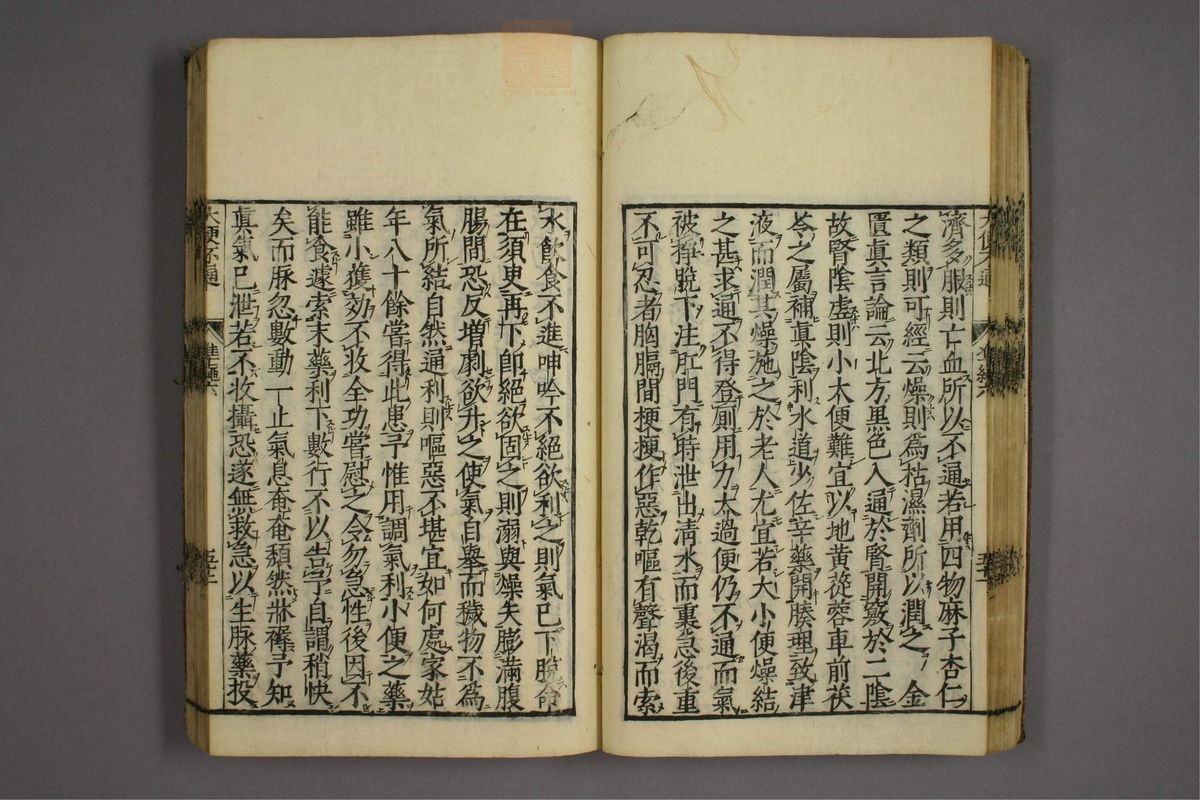 濟多服則亡血所以不通若用四物麻子杏仁
之類則可經云燥則爲枯濕劑所以潤之 金
匱真言論云北方黒色入通於腎開竅於二陰
故腎陰虛則小大便難宜以地黄蓯蓉車前茯
苓之屬補真陰利水道少佐辛藥開腠理致津
液而潤其燥施之於老人尤宜若大小便燥結
之甚求通不得登厠用力太過便仍不通而氣
被掙脫下注肛門有時泄出清水而裏急後重
不可忍者胸膈間梗梗作惡乾嘔有聲渴而索
水飲食不進呻吟不絕欲利之則氣已下脫命
在須臾再下卽絕欲固之則溺與燥矢膨滿腹
腸間恐反增劇欲升之使氣自舉而穢物不爲
氣所結自然通利則嘔惡不堪宜如何處家姑
年八十餘嘗得此患予惟用調氣利小便之藥
雖小獲効不收全功嘗慰之令勿急性後因不
能食遽索末藥利下數行不以告予自謂稍快
矣而脉忽數動一止氣息奄奄頽然牀褥予知
眞氣已泄若不收攝恐遂無救急以生脉藥投
大便不通
五十二